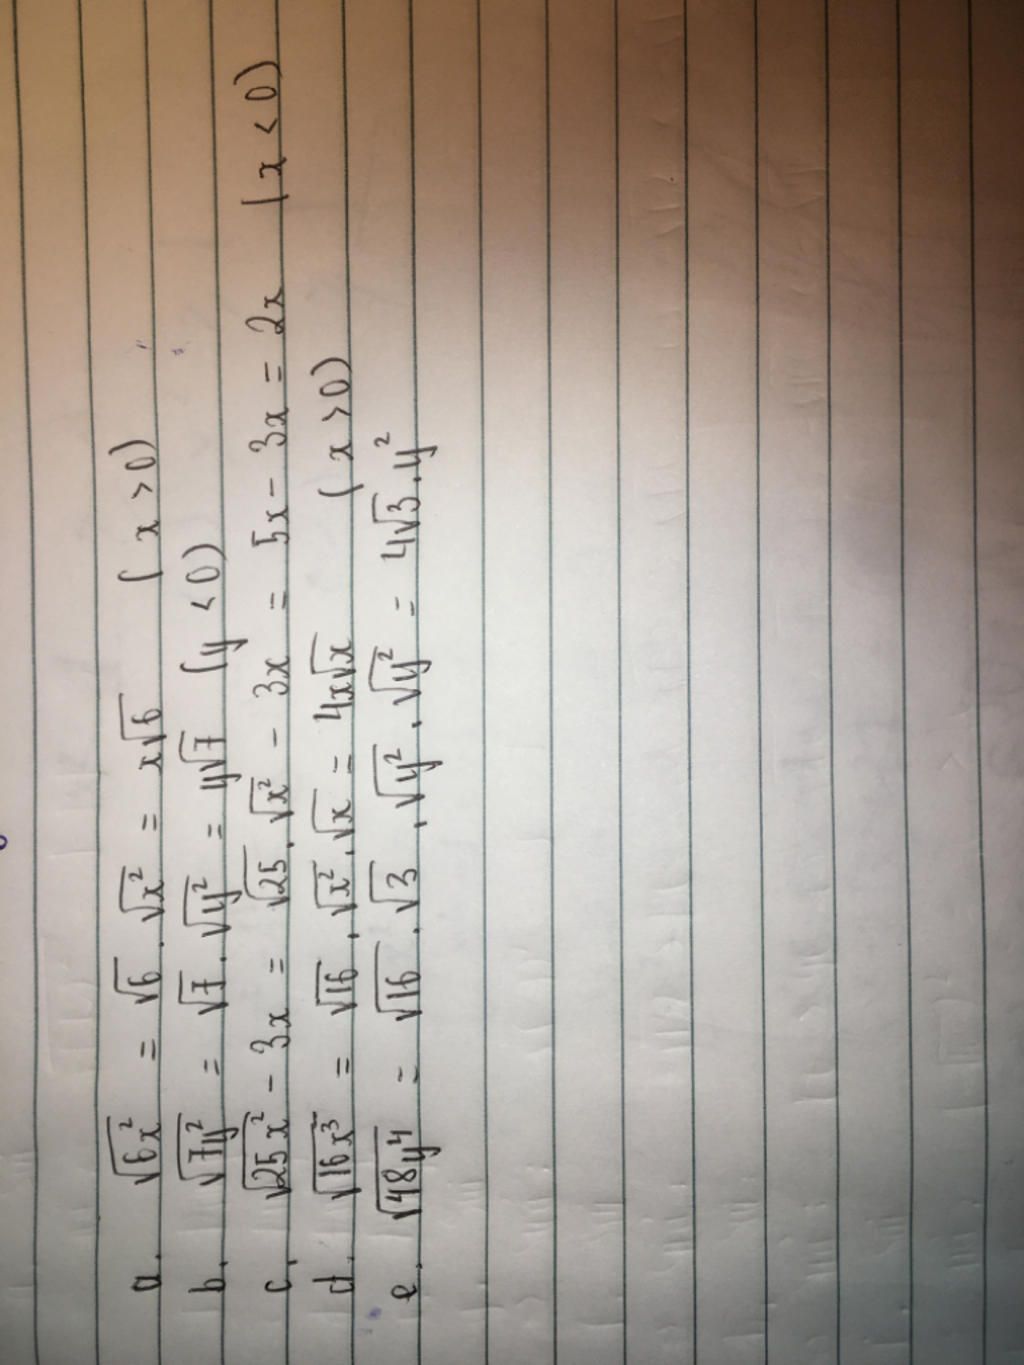 a. √6x² = √6 . √x² = x√6 (x > 0)
b. √7y² = √7 . √y² = y√7 (y < 0)
c. √25x² - 3x = √25 . √x² - 3x = 5x - 3x = 2x (x < 0)
d. √16x³ = √16 . √x² . √x = 4x√x (x > 0)
e. √48y⁴ = √16 . √3 . √y² . √y² = 4√3 . y²